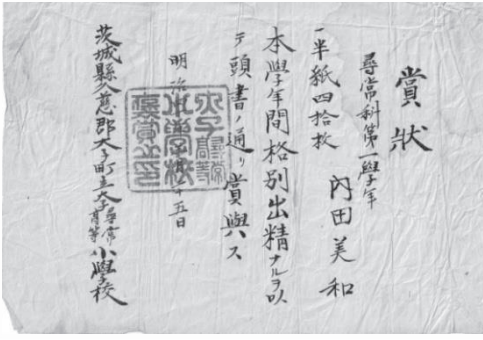 賞狀
尋常科第一學年
內田美和
一半紙四拾枚
本學年間格別出精ナルヲ以
テ頭書ノ通リ賞與ス
明治十五日
茨城縣久慈郡大子町立大子尋常高等小學校
大子尋常高等小學校褒賞之印